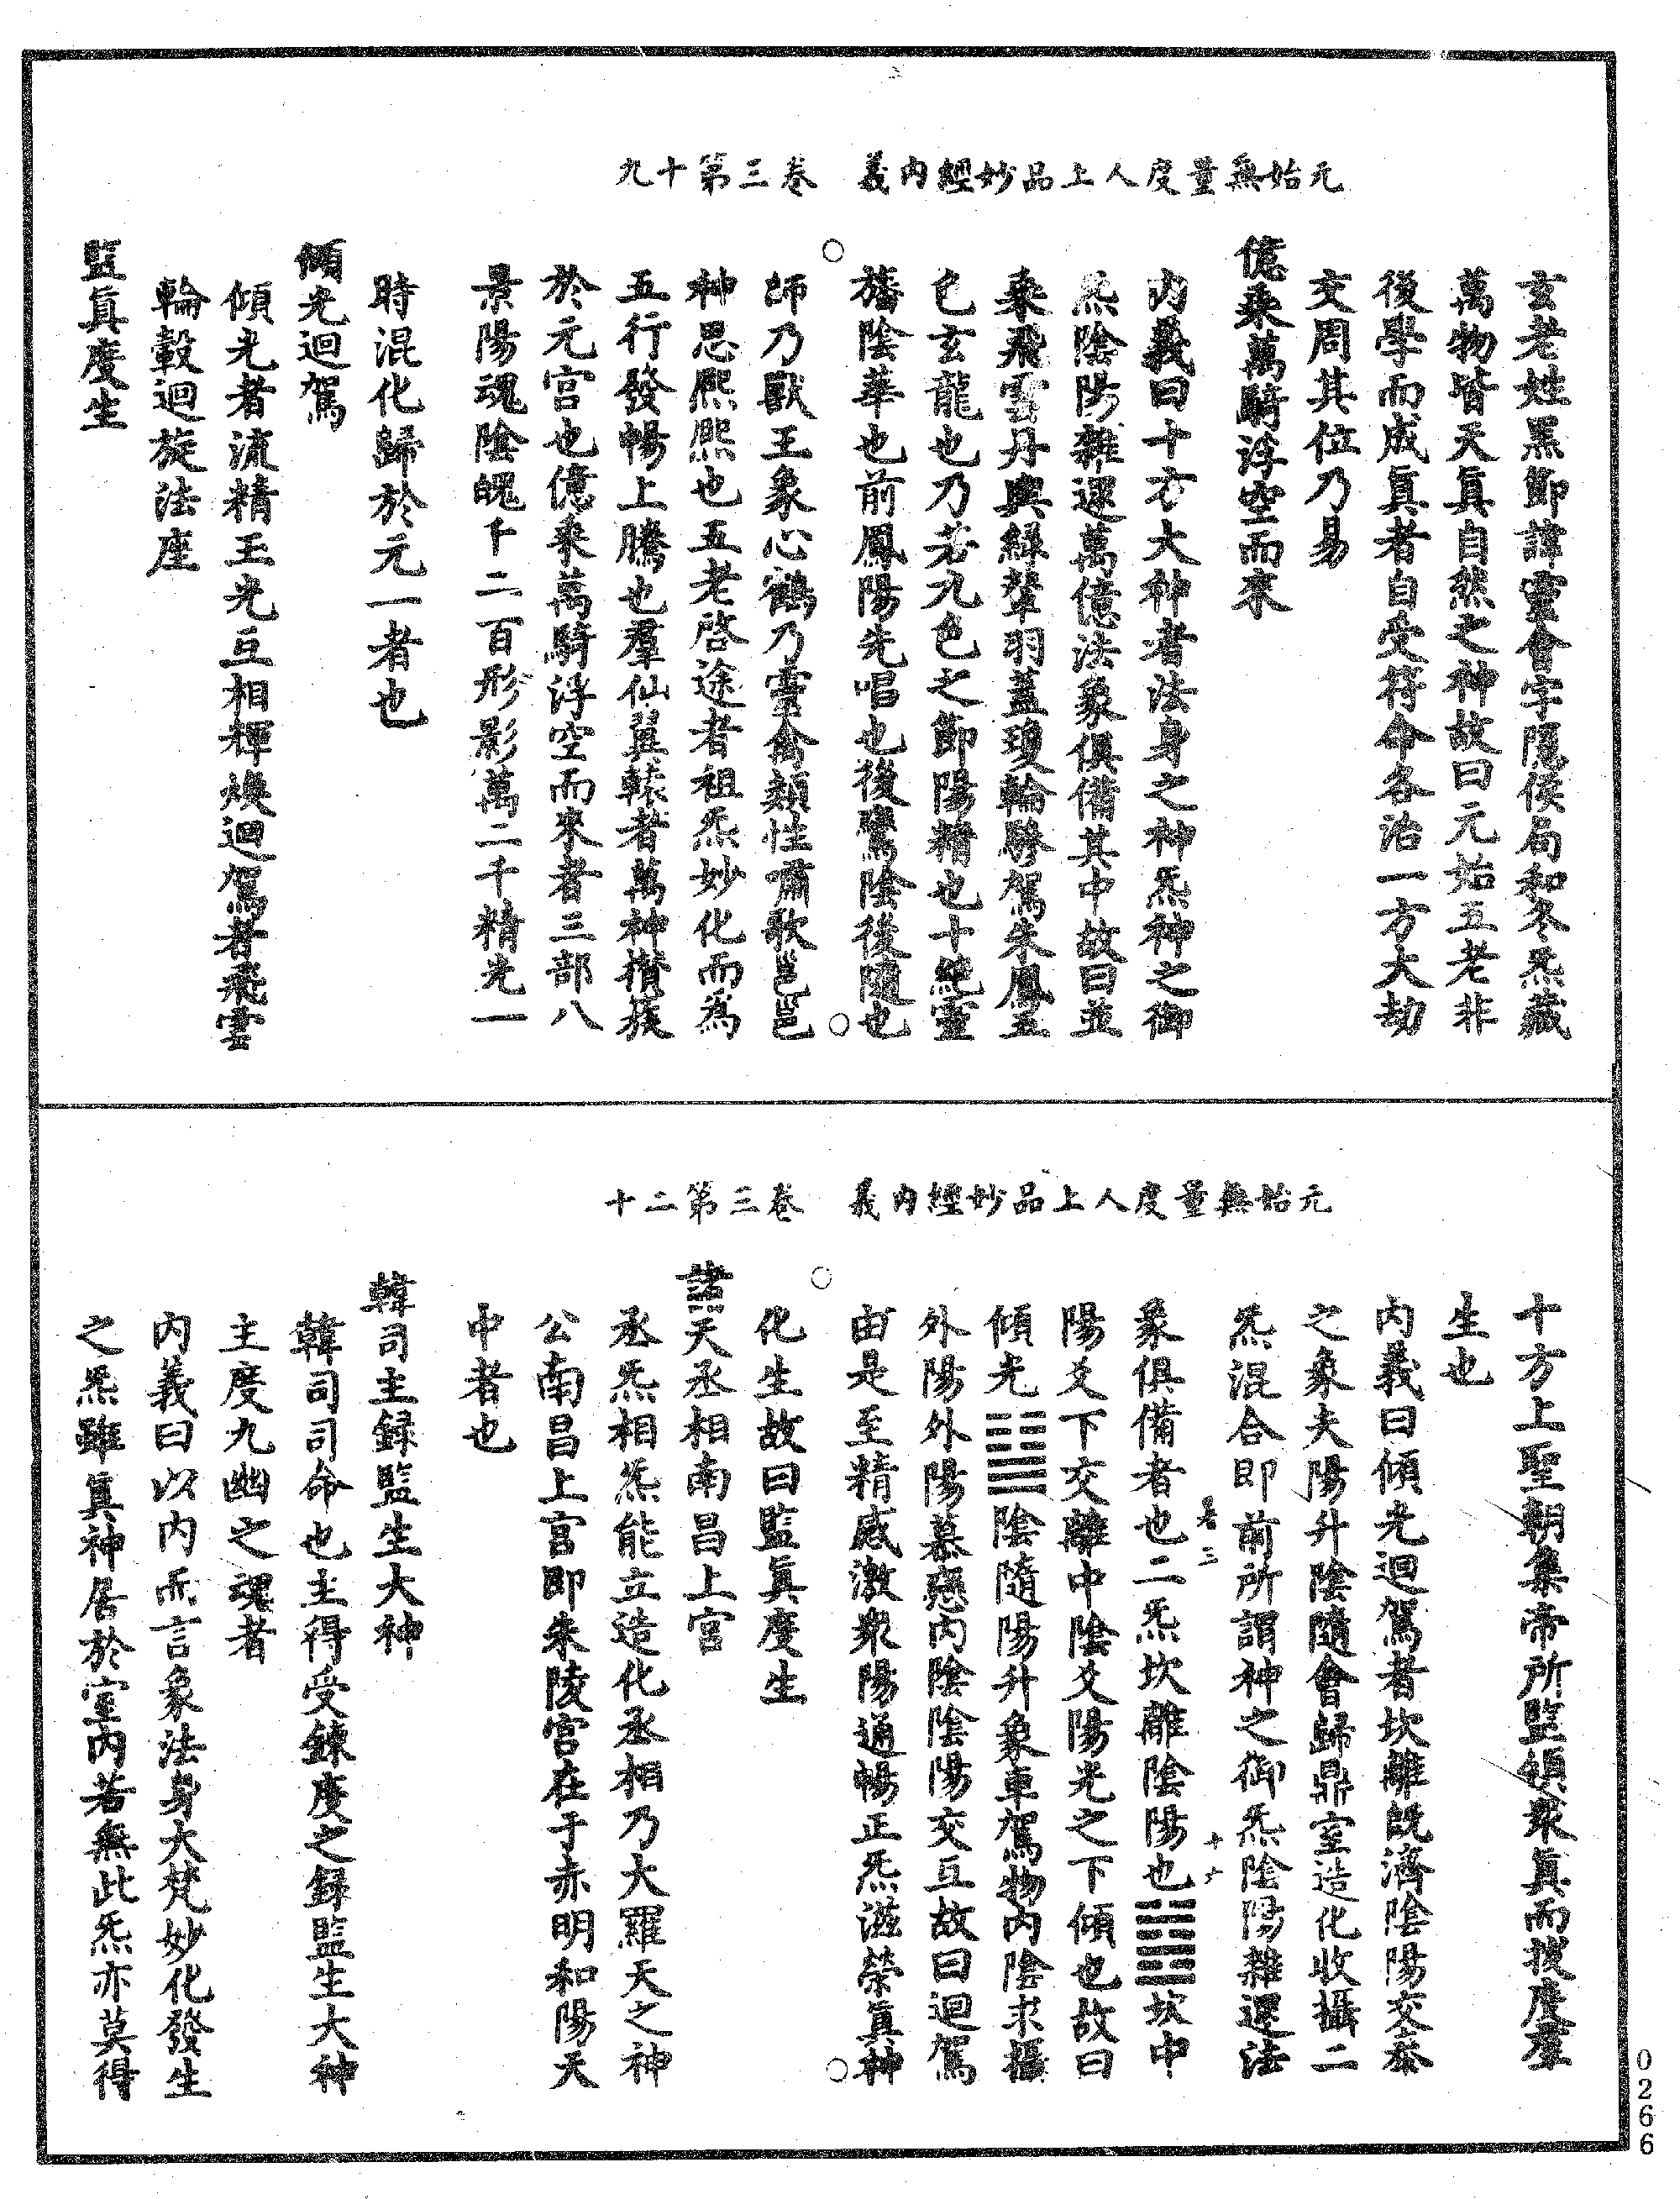 元始無量度人上品妙經內義　卷三第十九
玄老姓黑節諱靈會字隱侯局和冬炁藏
萬物皆天真自然之神故曰元始五老非
後學而成真者自受符命各治一方大劫
交周其位乃易
億乘萬騎浮空而來
內義曰十方大神者法身之神炁神之御
炁陰陽雜還萬億法象俱備其中故曰並
乘飛雲丹輿綠輦羽蓋瓊輪驂駕朱鳳五
色玄龍也乃若九色之節陽精也十絕靈
旛陰華也前鳳陽先唱也後鸞陰後隨也
師乃獸王象心鶴乃雲禽類性嘯歌邕邕
神思熈熈也五老啓途者祖炁妙化而為
五行發暢上騰也羣仙翼轅者萬神攢簇
於元宮也億乘萬騎浮空而來者三部八
景陽魂陰魄千二百形影萬二千精光一
時混化歸於元一者也
傾光迴駕
傾光者流精玉光互相輝煥迴駕者飛雲
輪轂迴旋法座
監真度生
元始無量度人上品妙經內義　卷三第二十
十方上聖朝集帝所監領衆真而拔度羣
生也
內義曰傾光迴駕者坎離旣濟陰陽交泰
之象夫陽升陰隨會歸鼎室造化收攝二
炁混合即前所謂神之御炁陰陽雜還法
卷三　十六
象俱備者也二炁坎離陰陽也䷜坎中
陽爻下交離中陰爻陽光之下傾也故曰
傾光䷊陰隨陽升象車駕物內陰求攝
外陽外陽慕戀內陰陰陽交互故曰迴駕
由是至精感激衆陽通暢正炁滋榮真神
化生故曰監真度生
諸天丞相南昌上宮
丞炁相炁能立造化丞相乃大羅天之神
公南昌上宮即朱陵宮在于赤明和陽天
中者也
韓司主録監生大神
韓司司命也主得受鍊度之録監生大神
主度九幽之魂者
內義曰以內而言象法身大梵妙化發生
之炁雖真神居於室內若無此炁亦莫得
0266